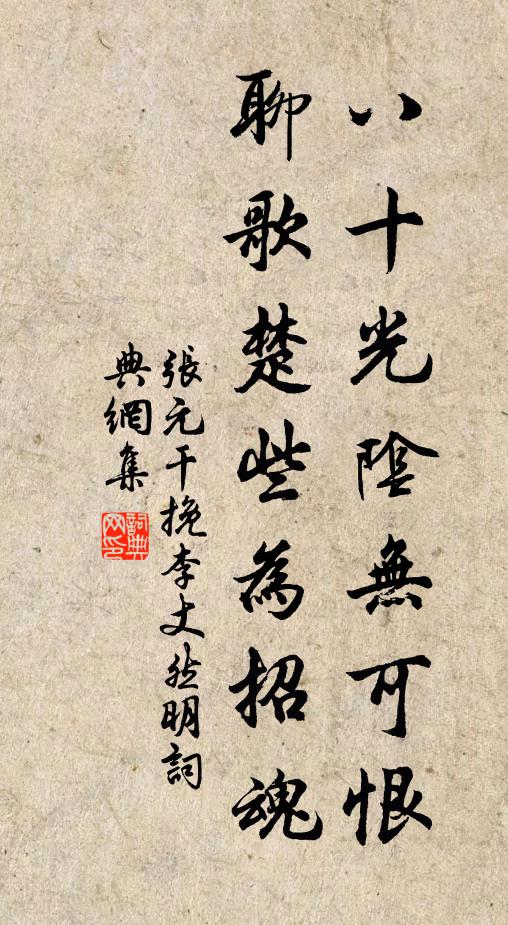 八十光陰無可恨
聊歌楚些為招魂
張元干挽李丈然明詞
典網集
詞典
网印